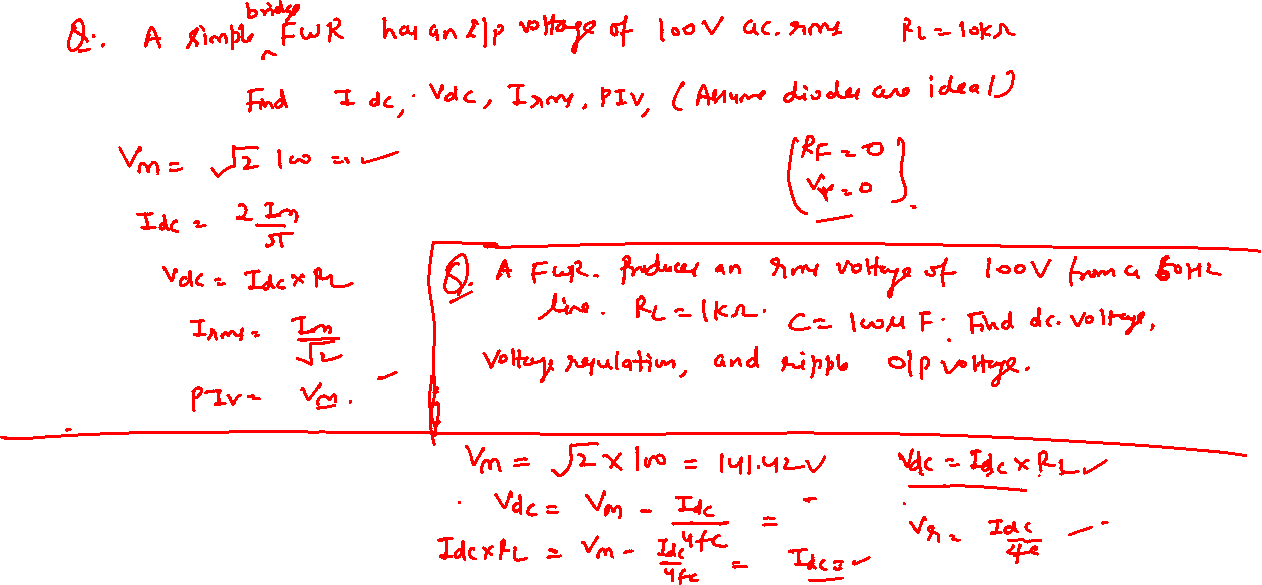 Q:. A simple bridge FWR has an i/p voltage of 100V ac. rms RL = 10kΩ
Find Idc, Vdc, Irms, PIV, (Assume diodes are ideal)
(RF = 0
Vγ = 0).
Vm = √2 100 =
Idc = 2 Im/π
Vdc = Idc x RL
Irms = Im/√2
PIV = Vm.
Q. A FWR. Produces an rms voltage of 100V from a 50Hz
line. RL = 1kΩ. C = 100μF. Find dc. voltage,
Voltage regulation, and ripple o/p voltage.
Vm = √2 x 100 = 141.42V Vdc = Idc x RL
Vdc = Vm - Idc/4fc =
Idc x RL = Vm - Idc/4fc = Idc = Vr = Idc/4fc